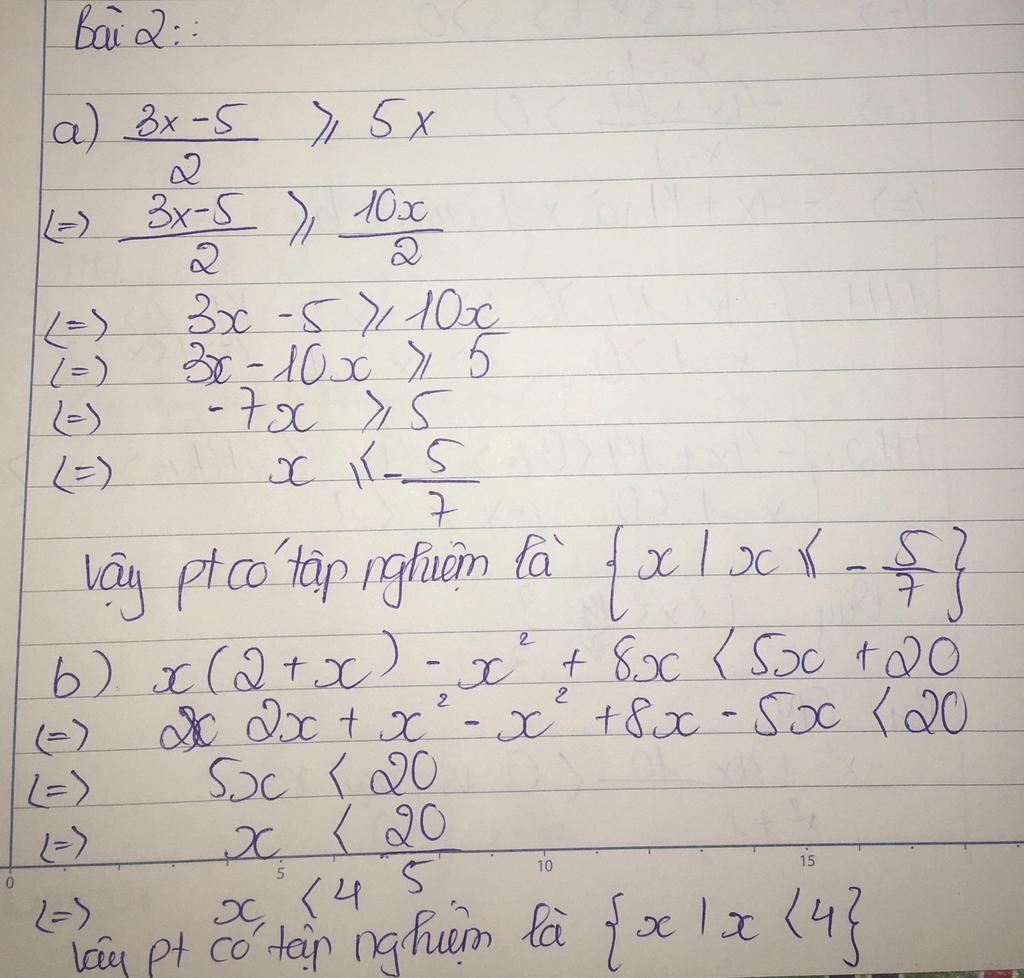 Bài 2::
a) \frac{3x-5}{2} ≥ 5x
(=) \frac{3x-5}{2} ≥ \frac{10x}{2}
(=) 3x - 5 ≥ 10x
(=) 3x - 10x ≥ 5
(=) -7x ≥ 5
(=) x ≤ -\frac{5}{7}
Vậy pt có tập nghiệm là {x | x ≤ -\frac{5}{7}}
b) x(2 + x) - x² + 8x < 5x + 20
(=) 2x + x² - x² + 8x - 5x < 20
(=) 5x < 20
(=) x < \frac{20}{5}
0 5 10 15
(=) x < 4
Vậy pt có tập nghiệm là {x | x < 4}